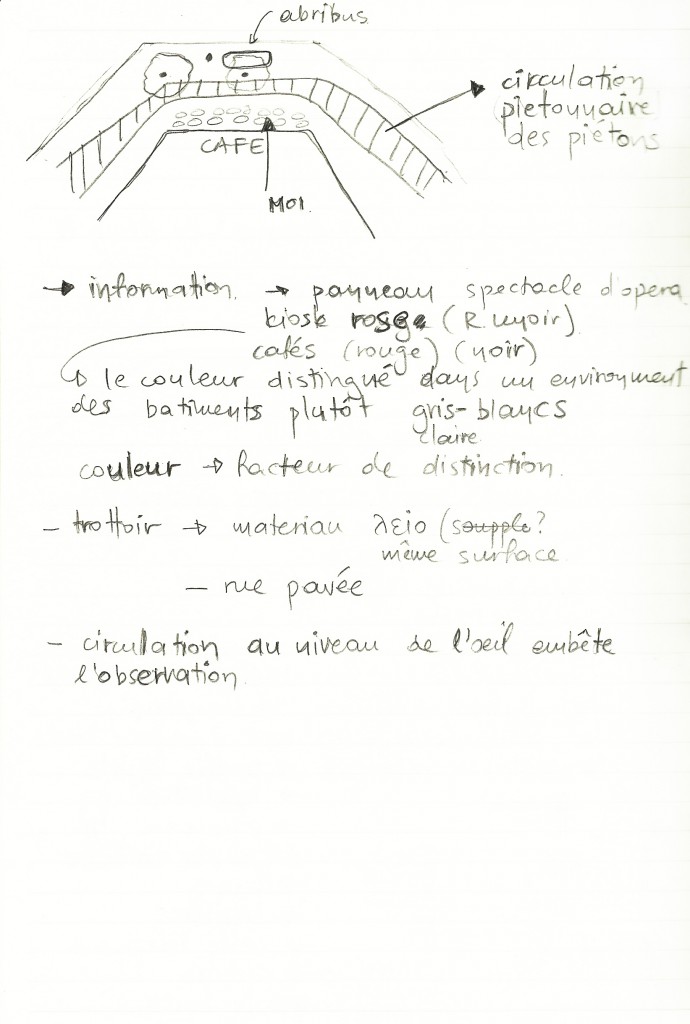 abribus
circulation
pietonnaire
des piétons
CAFE
MOI.
→ information. → panneau spectacle d'opera
kiosk rosge (R. unoir)
cafés (rouge) (noir)
↳ le couleur distingué dans un environment
des batiments plutôt gris-blancs
claire
couleur → facteur de distinction.
- trottoir → materiau λείο (souple?
même surface
- rue pavée
- circulation au niveau de l'oeil embête
l'observation.